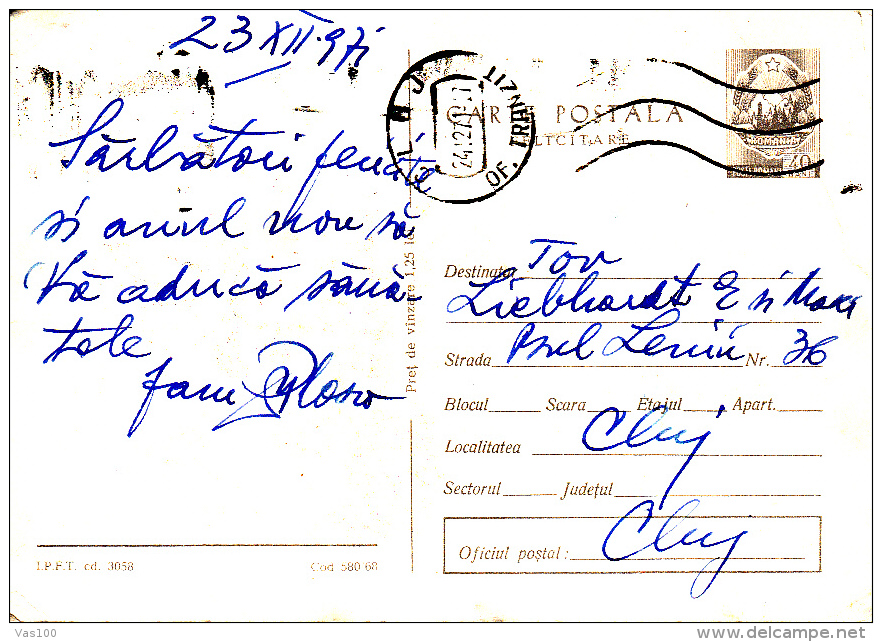 23 XII 971
Sărbători fericite
și anul nou să
Vă aducă sănă
tate
fam
CLUJ
OF. TRANZIT
CARTE POSTALA
FELICITARE
ROMANIA
40
Preț de vînzare 1,25 lei
Destinatar Tov
Liebhardt E și
Strada Bul Lenin Nr. 36
Blocul Scara Etajul Apart.
Localitatea Cluj
Sectorul Județul
Oficiul poștal: Cluj
I.P.F.T. cd. 3058
Cod 580-68
Vas100
delcampe.net